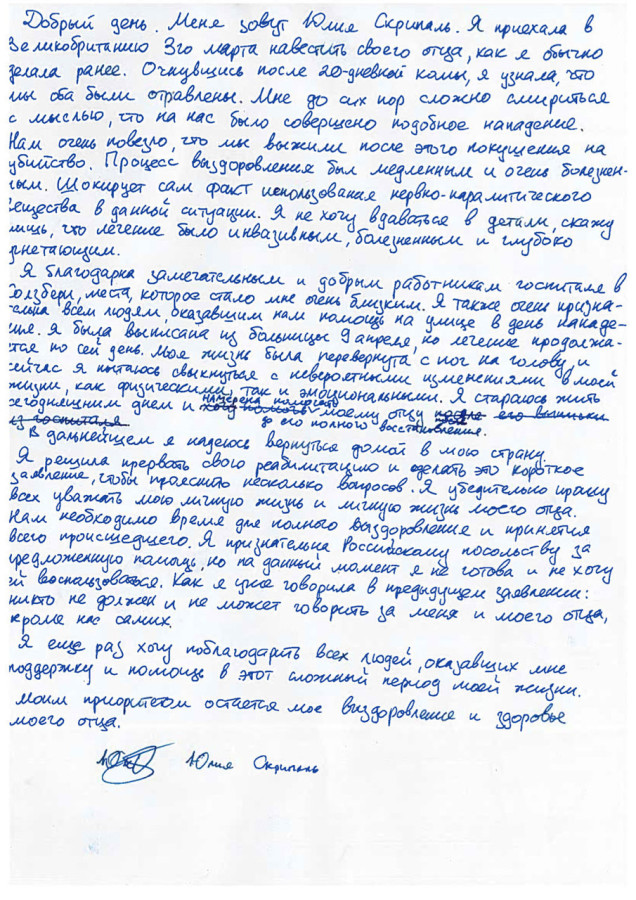 Добрый день. Меня зовут Юлия Скрипаль. Я приехала в
Великобританию 3го марта навестить своего отца, как я обычно
делала ранее. Очнувшись после 20-дневной комы, я узнала, что
мы оба были отравлены. Мне до сих пор сложно смириться
с мыслью, что на нас было совершено подобное нападение.
Нам очень повезло, что мы выжили после этого покушения на
убийство. Процесс выздоровления был медленным и очень болезнен-
ным. Шокирует сам факт использования нервно-паралитического
вещества в данной ситуации. Я не хочу вдаваться в детали, скажу
лишь, что лечение было инвазивным, болезненным и глубоко
угнетающим.
Я благодарна замечательным и добрым работникам госпиталя в
Солзбери, места, которое стало мне очень близким. Я также очень призна-
тельна всем людям, оказавшим нам помощь на улице в день нападе-
ния. Я была выписана из больницы 9 апреля, но лечение продолжа-
ется по сей день. Моя жизнь была перевернута с ног на голову, и
сейчас я пытаюсь свыкнуться с невероятными изменениями в моей
жизни, как физическими, так и эмоциональными. Я стараюсь жить
сегодняшним днем и намерена помогать хочу помочь моему отцу после его выписки
из госпиталя до его полного восстановления.
В дальнейшем я надеюсь вернуться домой в мою страну.
Я решила прервать свою реабилитацию и сделать это короткое
заявление, чтобы прояснить несколько вопросов. Я убедительно прошу
всех уважать мою личную жизнь и личную жизнь моего отца.
Нам необходимо время для полного выздоровления и принятия
всего происшедшего. Я признательна Российскому посольству за
предложенную помощь, но на данный момент я не готова и не хочу
ей воспользоваться. Как я уже говорила в предыдущем заявлении:
никто не должен и не может говорить за меня и моего отца,
кроме нас самих.
Я еще раз хочу поблагодарить всех людей, оказавших мне
поддержку и помощь в этот сложный период моей жизни.
Моим приоритетом остается мое выздоровление и здоровье
моего отца.
Юлия Скрипаль